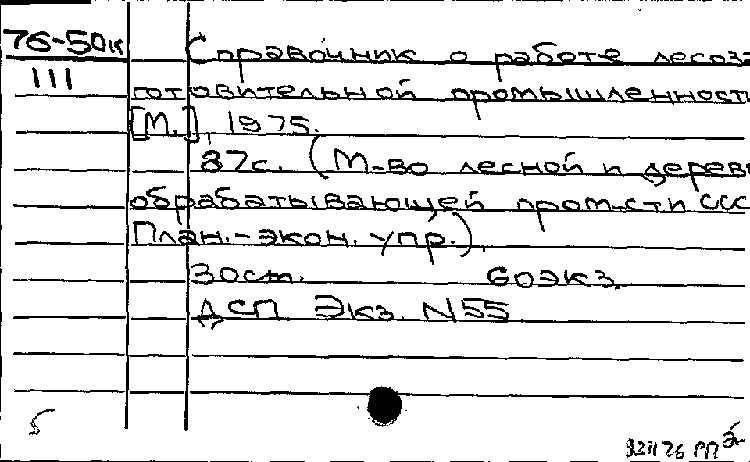 76-50к Справочник о работе лесоза
III готовительной промышленност
[М.], 1975.
87с. (М-во лесной и дерев
обрабатывающей пром-сти ССС
План.-экон. упр.).
30ст. 60экз.
ДСП Экз. N55